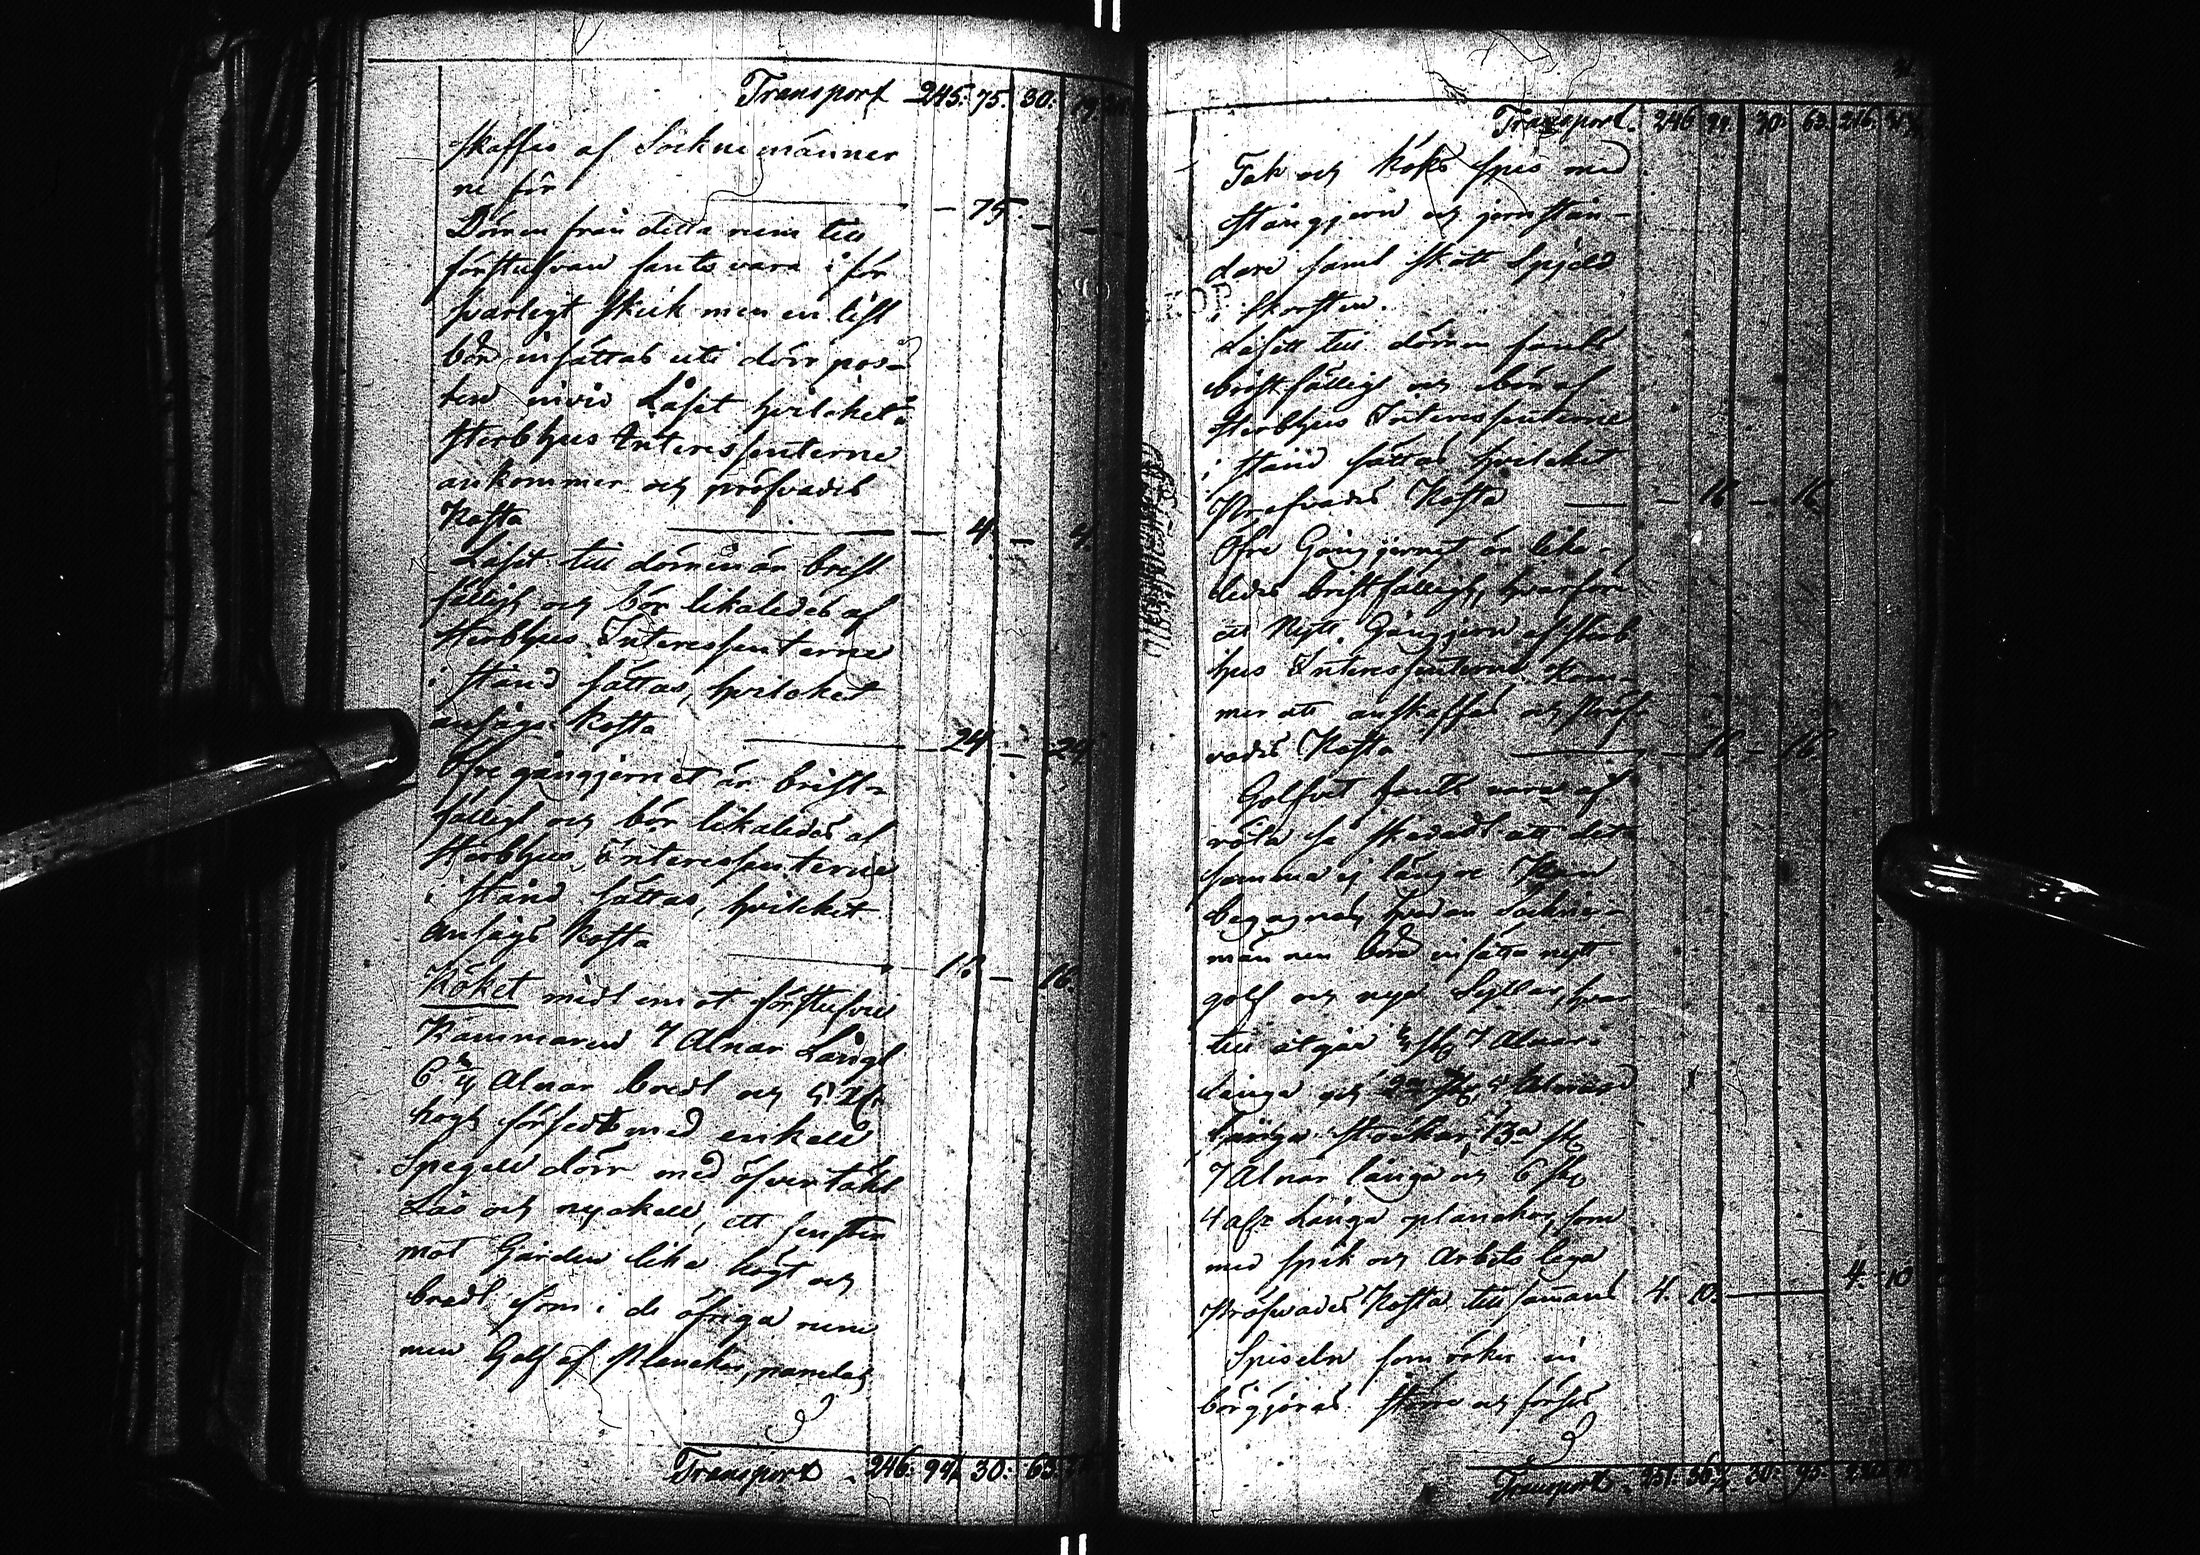 Transport 245: 75. 30: 19.
skaffas af Sockne männer
ne för — 75. — —
Dörren från detta rum till
förstufvan fants vara i för
svarligt skick men en list
bör insättas uti dörr pos-
ten invid Låset hvilcket
Sterbhus Interessenterne
ankommer och pröfvades
Kosta — 4. — 4.
Låset till dörren är brist
fälligt och bör likaledes af
Sterbhus Interessenterne
i stånd sättas, hvilcket
ansågs Kosta — 24 — 24
Öfre gångjernet är brist-
fälligt och bör likaledes af
Sterbhus Interessenterne
i stånd sättas, hvilcket
Ansågs Kosta — 16 — 16
Köket midt emot förstufvu
Kammaren 7 Alnar Långt
6 Alnar bredt och
högt försedt med enkell
Spegell dörr med öfvertäkt
Lås och nyckell, ett fenster
mot Gården lika högt och
bredt som i de öfriga rum
men Golf af Planckor, paneladt
Transport 246. 99 30: 63.
Transport. 246 99 30: 63. 216.
Tak och Köks spis med
stångjern och jern stän-
dare samt skått Spjeld
i skorsten.
Låset till dörren fants
bristfälligt och bör af
Sterbhus Interessenterne
i stånd sättas hvilcket
Pröfvades Kosta — 16 — 16
Öfre Gångjernet är lika-
ledes bristfälligt, hvarför
ett Nytt Gångjern af Sterb
hus Interessenterne kom-
mer att anskaffas och Pröf
vades Kosta — 16 — 16
Golfvet fants vara af
röta så skadadt att det
samma ej längre Kan
begagnas, hvadan Sockne-
männen böra insätta nytt
golf och nya Syllar, hvar
till åtgår st 7 Alnar
Långa och 2 st Alnar
Långa stockar, 13 st
7 Alnar långa och 6 st
4 aln Långa planckor, som
med spik och Arbets lega
Pröfvades Kosta tillsamans 4. 10. — 4. 10
Spiseln som röker in
bör gjöras större och förses
Transport 251. 30: 95.